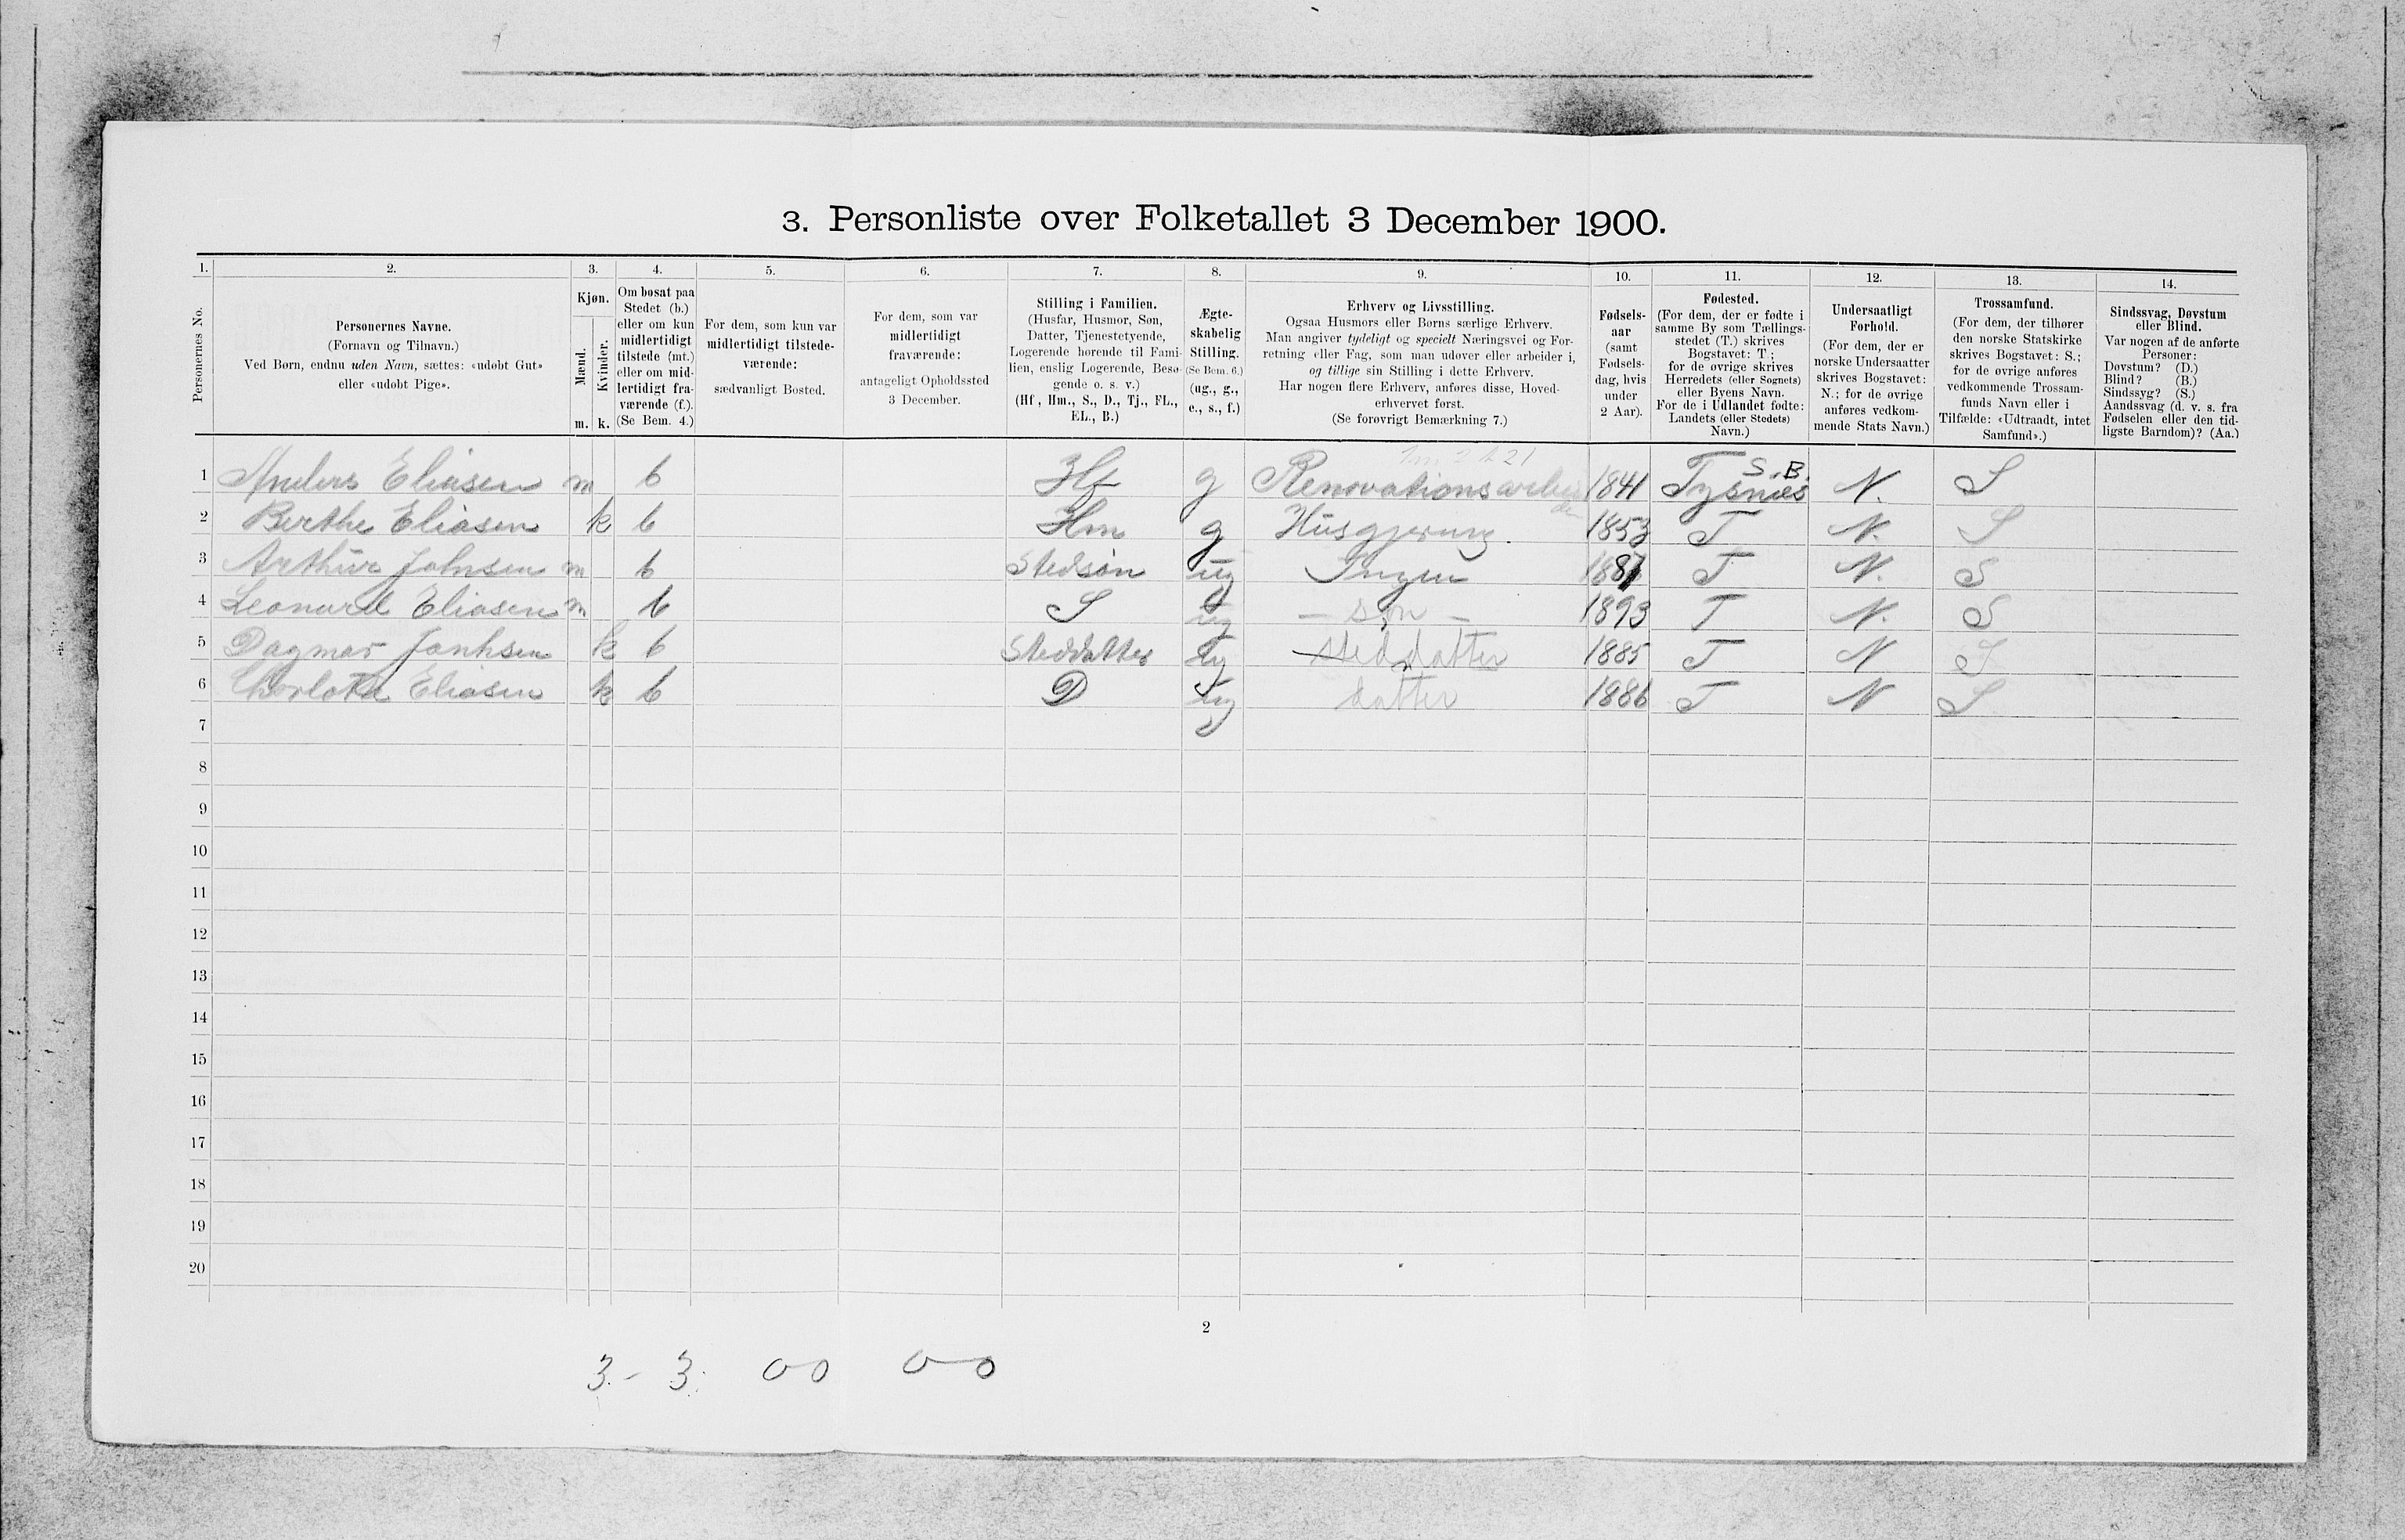 3. Personliste over Folketallet 3 December 1900.
1. 2. 3. 4. 5. 6. 7. 8. 9. 10. 11. 12. 13. 14.
Personernes No.
Personernes Navne.
(Fornavn og Tilnavn.)
Ved Børn, endnu uden Navn, sættes: «udøbt Gut»
eller «udøbt Pige».
Kjøn.
Mænd.
Kvinder.
m. k.
Om bosat paa
Stedet (b.)
eller om kun
midlertidigt
tilstede (mt.)
eller om mid-
lertidigt fra-
værende (f.).
(Se Bem. 4.)
For dem, som kun var
midlertidigt tilstede-
værende:
sædvanligt Bosted.
For dem, som var
midlertidigt
fraværende:
antageligt Opholdssted
3 December.
Stilling i Familien.
(Husfar, Husmor, Søn,
Datter, Tjenestetyende,
Logerende hørende til Fami-
lien, enslig Logerende, Besø-
gende o. s. v.)
(Hf, Hm., S., D., Tj., FL.,
EL., B.)
Ægte-
skabelig
Stilling.
(Se Bem. 6.)
(ug., g.,
e., s., f.)
Erhverv og Livsstilling.
Ogsaa Husmors eller Børns særlige Erhverv.
Man angiver tydeligt og specielt Næringsvei og For-
retning eller Fag, som man udøver eller arbeider i,
og tillige sin Stilling i dette Erhverv.
Har nogen flere Erhverv, anføres disse, Hoved-
erhvervet først.
(Se forøvrigt Bemærkning 7.)
Fødsels-
aar
(samt
Fødsels-
dag, hvis
under
2 Aar).
Fødested.
(For dem, der er fødte i
samme By som Tællings-
stedet (T.) skrives
Bogstavet: T.;
for de øvrige skrives
Herredets (eller Sognets)
eller Byens Navn.
For de i Udlandet fødte:
Landets (eller Stedets)
Navn.)
Undersaatligt
Forhold.
(For dem, der er
norske Undersaatter
skrives Bogstavet:
N.; for de øvrige
anføres vedkom-
mende Stats Navn.)
Trossamfund.
(For dem, der tilhører
den norske Statskirke
skrives Bogstavet: S.;
for de øvrige anføres
vedkommende Trossam-
funds Navn eller i
Tilfælde: «Udtraadt, intet
Samfund».)
Sindssvag, Døvstum
eller Blind.
Var nogen af de anførte
Personer:
Døvstum? (D.)
Blind? (B.)
Sindssyg? (S.)
Aandssvag (d. v. s. fra
Fødselen eller den tid-
ligste Barndom)? (Aa.)
S. B.
1 Anders Eliasen m b Hf g Renovationsarbeider 1841 Tysnæs N. S
2 Berthe Eliasen k b Hm g Husgjerning. 1853 T N. S
3 Arthur Johnsen m b Stedsøn ug Ingen 1887 T N. S
4 Leonard Eliasen m b S ug – søn – 1893 T N. S
5 Dagmar Jonhsen k b Steddatter ug steddatter 1885 T N S
6 Charlotta Eliasen k b D ug datter 1886 T N S
7
8
9
10
11
12
13
14
15
16
17
18
19
20
2
3 - 3. 00 0-0